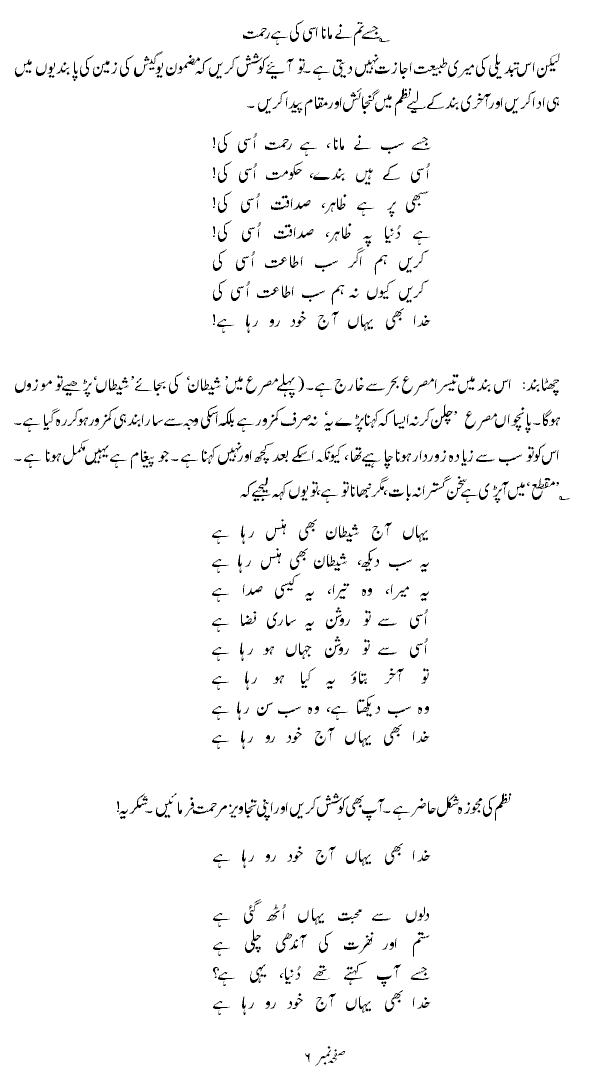 ؎ جسے تم نے مانا اسی کی ہے رحمت
لیکن اس تبدیلی کی میری طبیعت اجازت نہیں دیتی ہے۔ تو آیئے کوشش کریں کہ مضمون یوگیش کی زمین کی پابندیوں میں
ہی ادا کریں اور آخری بند کے لیے نظم میں گنجائش اور مقام پیدا کریں ۔
جسے سب نے مانا، ہے رحمت اُسی کی!
اُسی کے ہیں بندے، حکومت اُسی کی!
سبھی پر ہے ظاہر، صداقت اُسی کی!
ہے دُنیا پہ ظاہر، صداقت اُسی کی!
کریں ہم اگر سب اطاعت اُسی کی
کریں کیوں نہ ہم سب اطاعت اُسی کی
خدا بھی یہاں آج خود رو رہا ہے!
چھٹا بند: اس بند میں تیسرا مصرع بحر سے خارج ہے۔ (پہلے مصرع میں ’شیطان‘ کی بجائے ’شیطاں‘ پڑھیے تو موزوں
ہوگا۔ پانچواں مصرع ’چلن کر نہ ایسا کہ کہنا پڑے یہ‘ نہ صرف کمزور ہے بلکہ اسکی وجہ سے سارا بند ہی کمزور ہو کر رہ گیا ہے۔
اس کو تو سب سے زیادہ زوردار ہونا چاہیے تھا، کیونکہ اسکے بعد کچھ اور نہیں کہنا ہے۔ جو پیغام ہے یہیں مکمل ہونا ہے۔
؎ ’مقطع‘ میں آپڑی ہے سخن گسترانہ بات، مگر نبھانا تو ہے، تو یوں کہہ لیجیے کہ
یہاں آج شیطان بھی ہنس رہا ہے
یہ سب دیکھ، شیطان بھی ہنس رہا ہے
یہ میرا، وہ تیرا، یہ کیسی صدا ہے
اُسی سے تو روشن یہ ساری فضا ہے
اُسی سے تو روشن جہاں ہو رہا ہے
تو آخر بتاؤ یہ کیا ہو رہا ہے
وہ سب دیکھتا ہے، وہ سب سن رہا ہے
خدا بھی یہاں آج خود رو رہا ہے
نظم کی مجوزہ شکل حاضر ہے۔ آپ بھی کوشش کریں اور اپنی تجاویز مرحمت فرمائیں۔ شکریہ!
خدا بھی یہاں آج خود رو رہا ہے
دلوں سے محبت یہاں اُٹھ گئی ہے
ستم اور نفرت کی آندھی چلی ہے
جسے آپ کہتے تھے دُنیا، یہی ہے؟
خدا بھی یہاں آج خود رو رہا ہے
صفحہ نمبر ۶